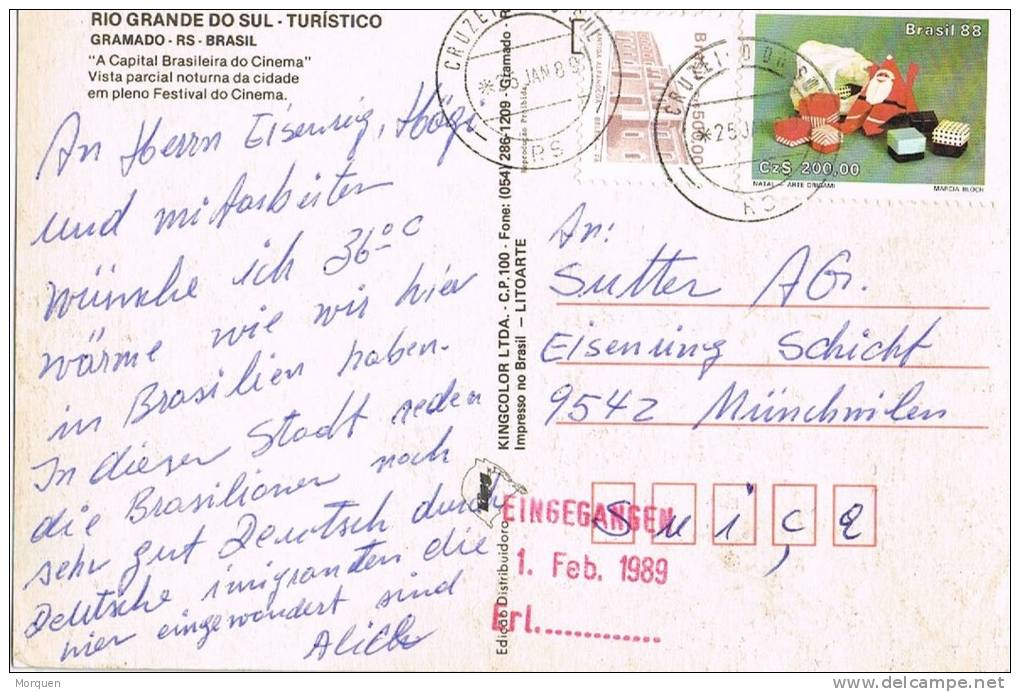 RIO GRANDE DO SUL - TURÍSTICO
GRAMADO - RS - BRASIL
"A Capital Brasileira do Cinema"
Vista parcial noturna da cidade
em pleno Festival do Cinema.
An Herrn Eisenring, Högi
und mitarbeiter
wünsche ich 36°C
wärme wie wir hier
in Brasilien haben.
In dieser Stadt reden
die Brasilioner noch
sehr gut Deutsch durch
Deutsche imigranten die
hier eingewandert sind
KINGCOLOR LTDA. - C.P. 100 - Fone: (054) 286-1209 - Gramado - R
Impresso no Brasil - LITOARTE
Reprodução Proibida
Edição Distribuidora
CRUZEI
JAN 89
RS
Brasil
500,00
CRUZEI O DO SU
*25JA
RS
Brasil 88
Cz$ 200,00
NATAL - ARTE ORIGAMI
MARCIA BLOCH
An:
Sutter AG.
Eisenring Schicht
9542 Münchwilen
Suiça
EINGEGANGEN
1. Feb. 1989
Erl.............
Morquen
delcampe.net